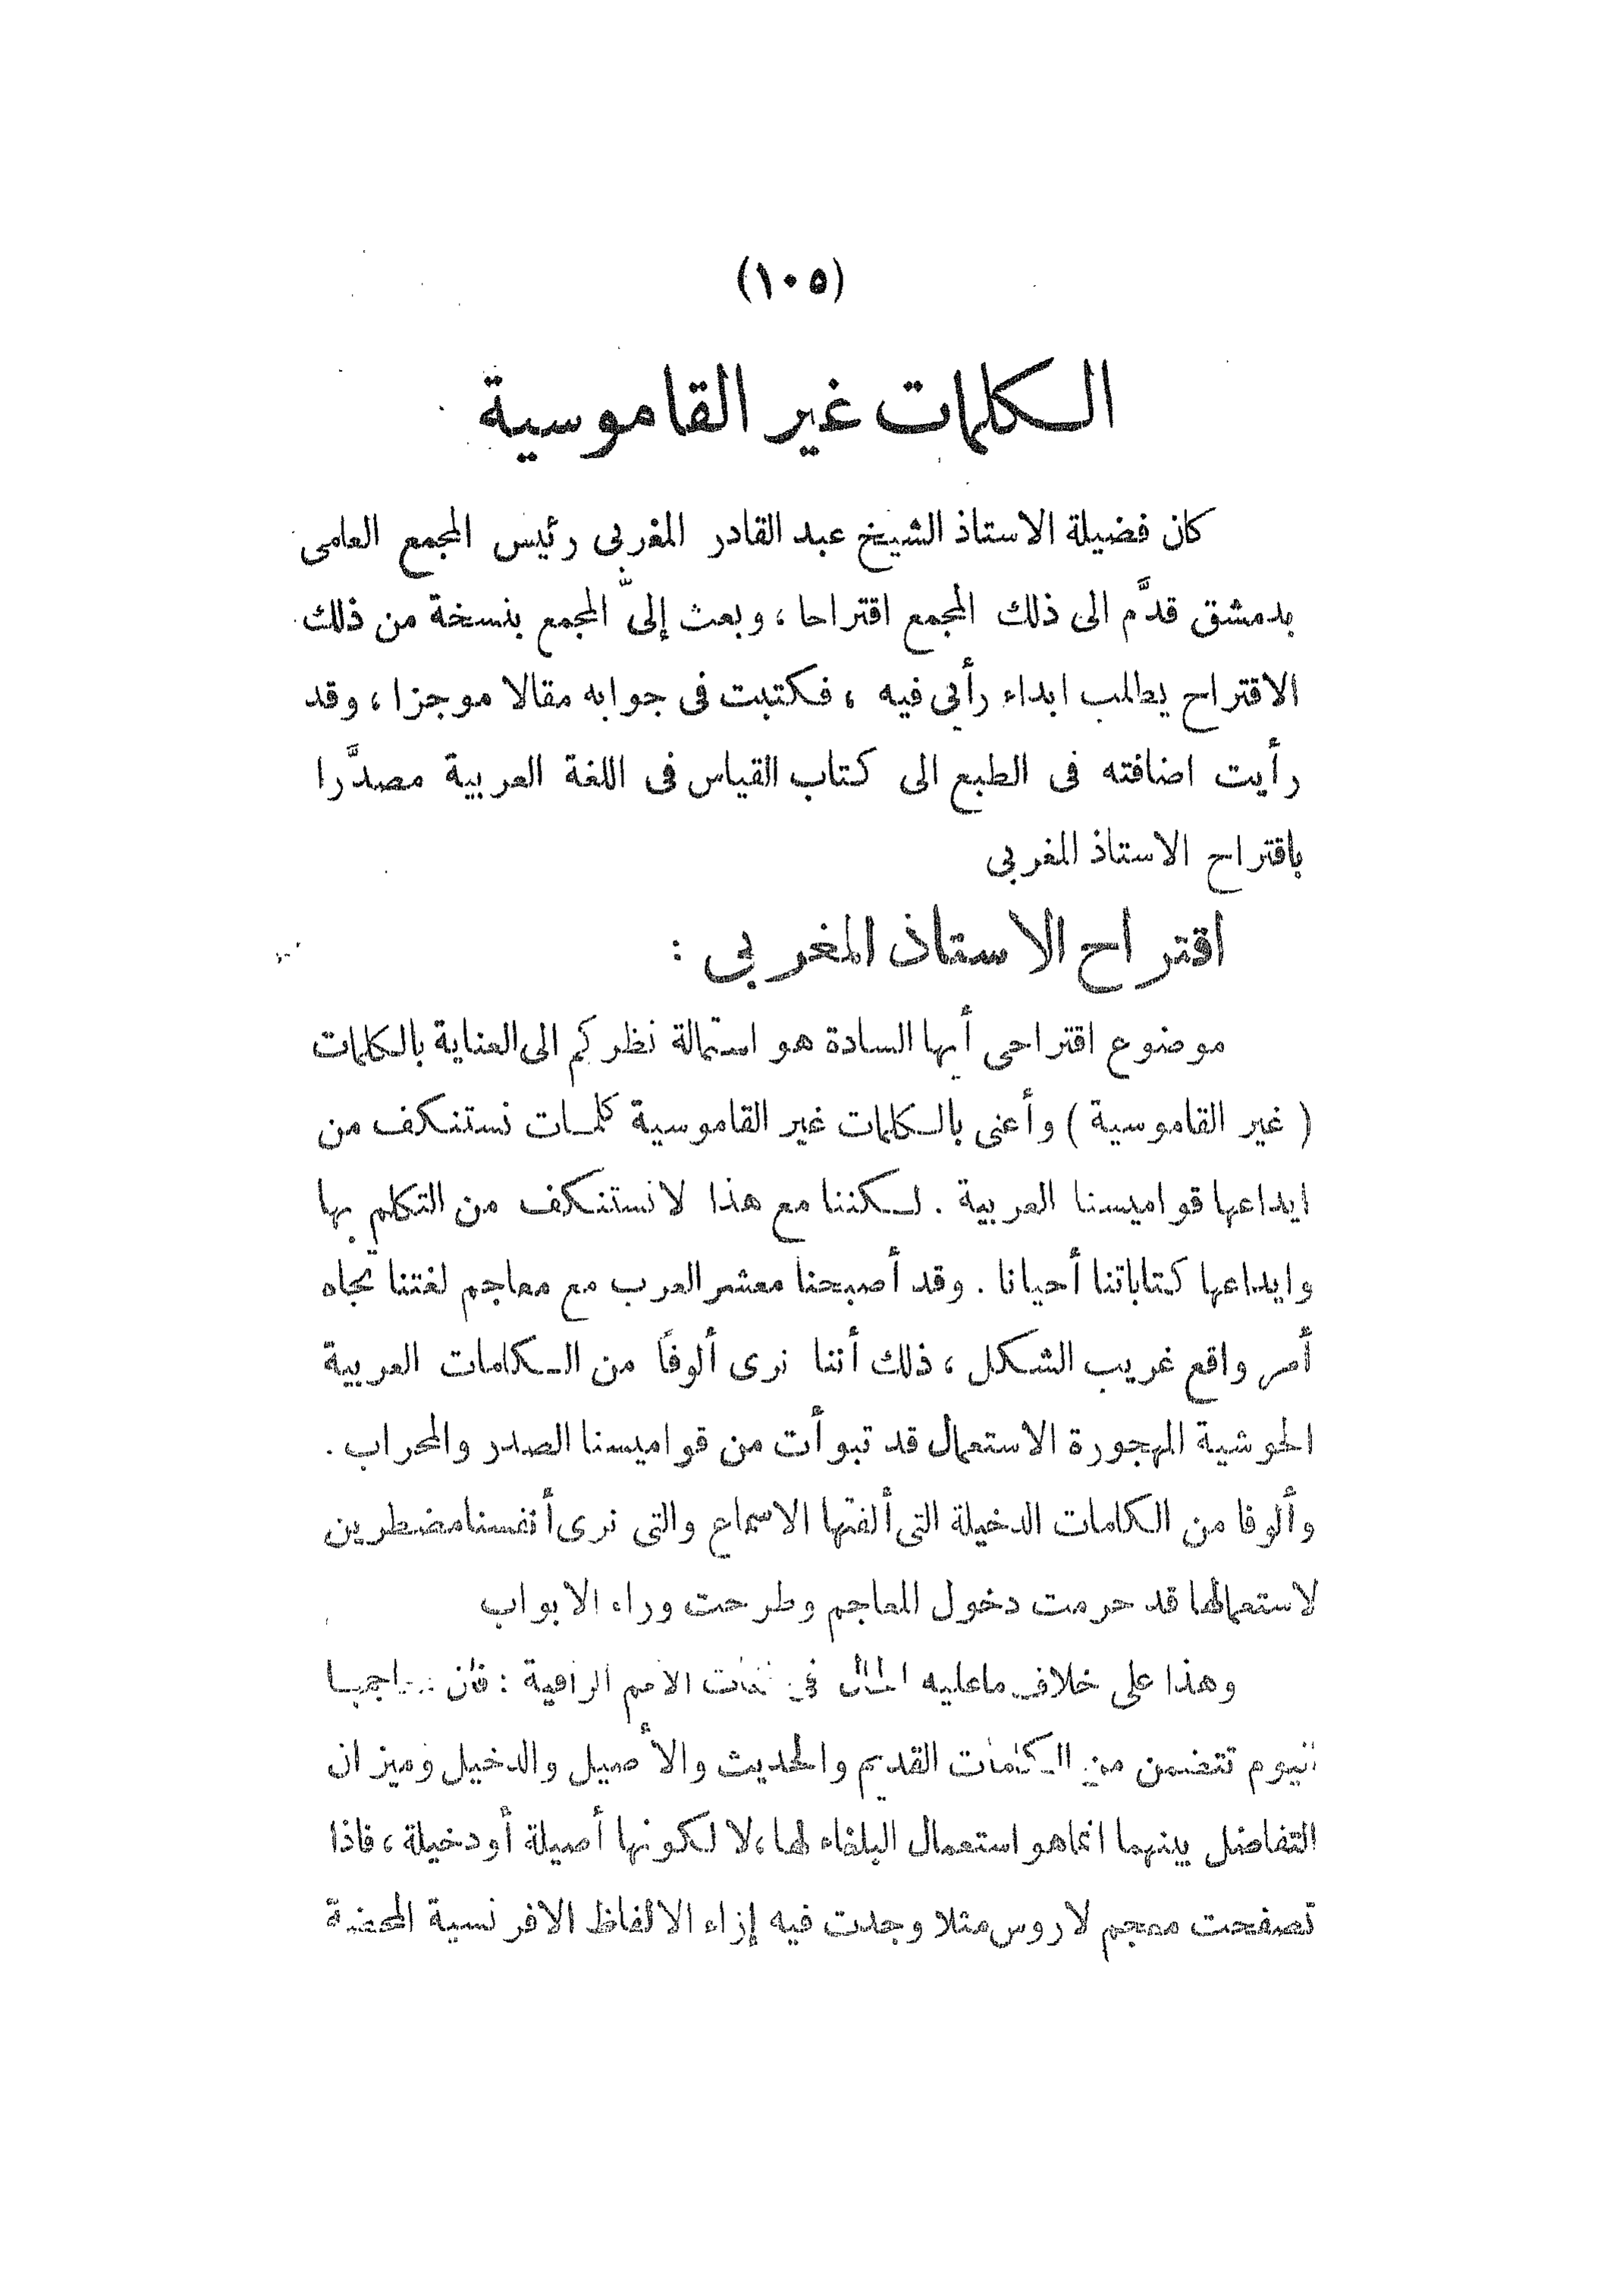 (١٠٥)
الكلمات غير القاموسية
كان فضيلة الاستاذ الشيخ عبد القادر المغربى رئيس المجمع العلمى
بدمشق قدَّم الى ذلك المجمع اقتراحا ، وبعث إلىّ المجمع بنسخة من ذلك
الاقتراح يطلب ابداء رأيى فيه ، فكتبت فى جوابه مقالا موجزا ، وقد
رأيت اضافته فى الطبع الى كتاب القياس فى اللغة العربية مصدَّرا
باقتراح الاستاذ المغربى
اقتراح الاستاذ المغربى :
موضوع اقتراحى أيها السادة هو استمالة نظركم الى العناية بالكلمات
( غير القاموسية ) وأعنى بالكلمات غير القاموسية كلمات نستنكف من
ايداعها قواميسنا العربية . لكننا مع هذا لانستنكف من التكلم بها
وايداعها كتاباتنا أحيانا . وقد أصبحنا معشر العرب مع معاجم لغتنا تجاه
أمر واقع غريب الشكل ، ذلك أننا نرى ألوفًا من الكلمات العربية
الحوشية المهجورة الاستعمال قد تبوأت من قواميسنا الصدر والمحراب .
وألوفا من الكلمات الدخيلة التى ألفتها الاسماع والتى نرى أنفسنا مضطرين
لاستعمالها قد حرمت دخول المعاجم وطرحت وراء الابواب
وهذا على خلاف ماعليه الحال فى لغات الامم الراقية : فان معاجمها
اليوم تتضمن من الكلمات القديم والحديث والأصيل والدخيل وميزان
التفاضل بينهما انماهو استعمال البلغاء لها ، لا لكونها أصيلة أودخيلة ، فاذا
تصفحت معجم لاروس مثلا وجدت فيه إزاء الالفاظ الافرنسية المحضة